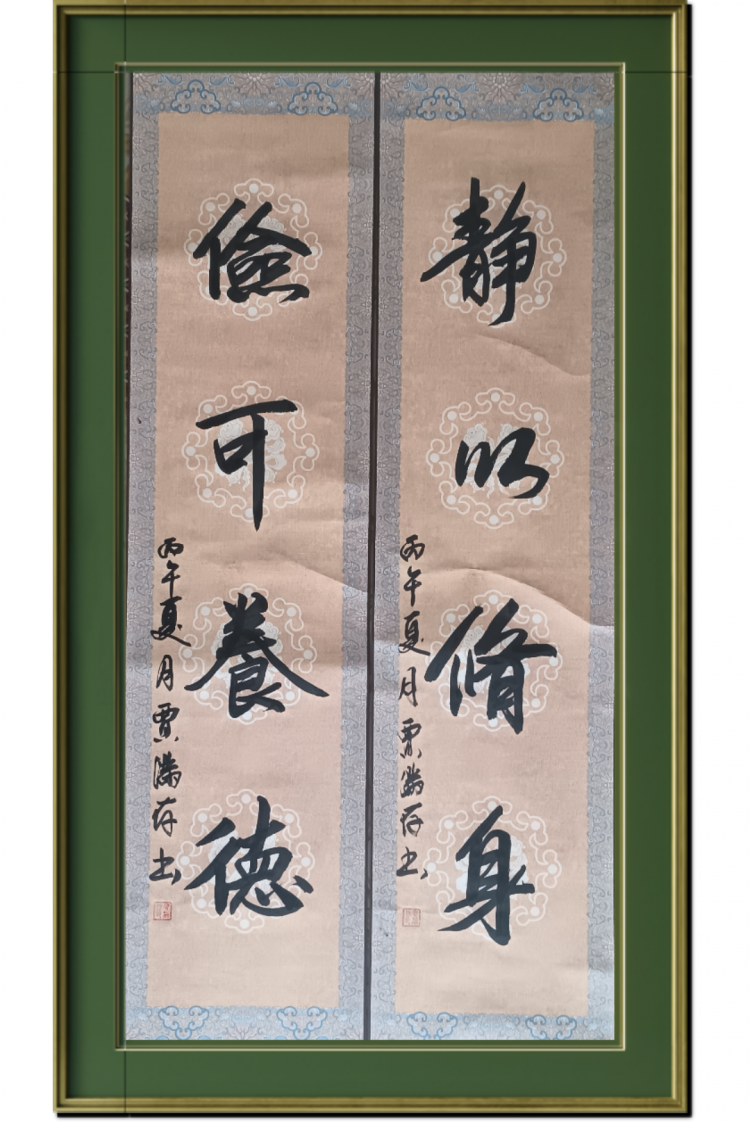 静以脩身
丙午夏月贾满存书
儉可養德
丙午夏月贾满存书